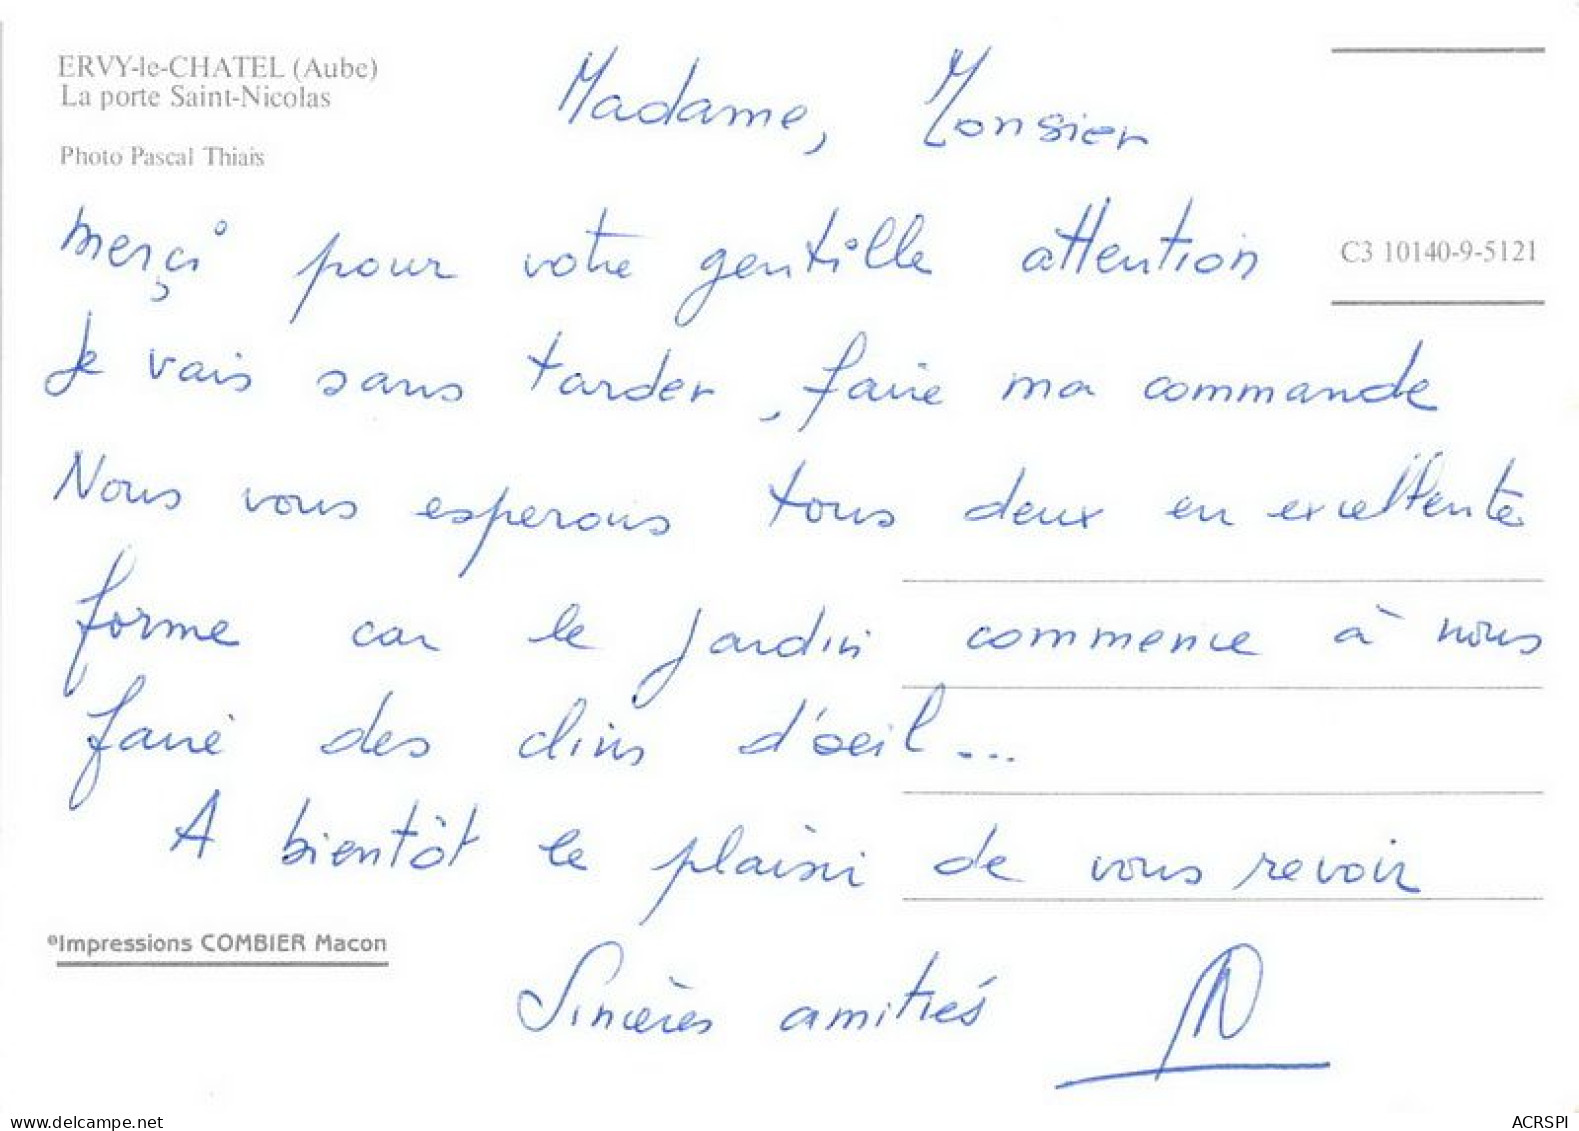 ERVY-le-CHATEL (Aube)
La porte Saint-Nicolas
Photo Pascal Thiais
Madame, Monsier
merçi pour votre gentille attention
C3 10140-9-5121
Je vais sans tarder, faire ma commande
Nous vous esperons tous deux en excellente
forme car le jardin commence à nous
faire des clins d'oeil...
A bientôt le plaisir de vous revoir
©Impressions COMBIER Macon
Sincères amitiés
www.delcampe.net
ACRSPI